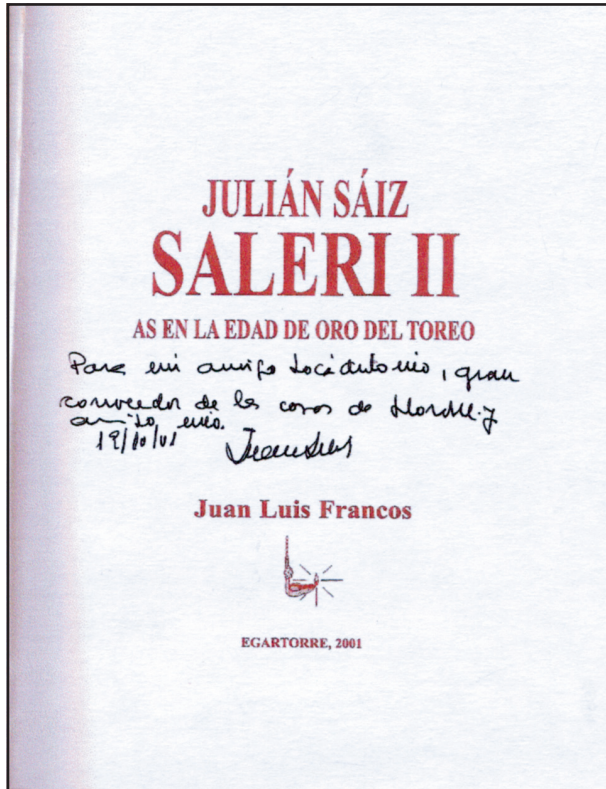 JULIÁN SÁIZ
SALERI II
AS EN LA EDAD DE ORO DEL TOREO
Para mi amigo José Antonio, gran
conocedor de las cosas de
amigo mío.
19/10/01 Juan Luis
Juan Luis Francos
EGARTORRE, 2001